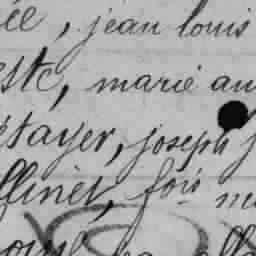 ée, jean louis
este, marie au
étayer, joseph j
ffinet, fois m